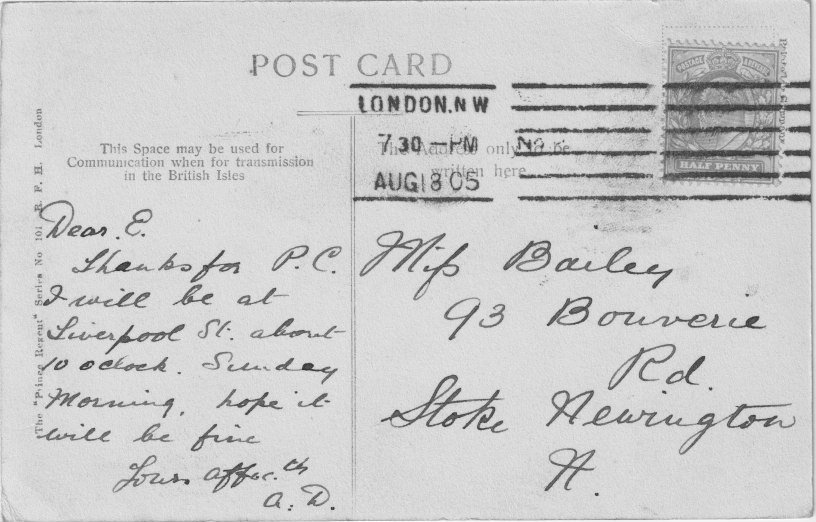 POST CARD
LONDON.N.W
7 30 - PM
AUG 18 05
POSTAGE
HALF PENNY
This Space may be used for
Communication when for transmission
in the British Isles
The Address only to be
written here
The "Prince Regent" Series No 101 R. P. H. London
Dear E.
Thanks for P.C.
I will be at
Liverpool St. about
10 oclock. Sunday
Morning, hope it
will be fine
Yours affec.th
A. D.
Miss Bailey
93 Bouverie
Rd.
Stoke Newington
N.